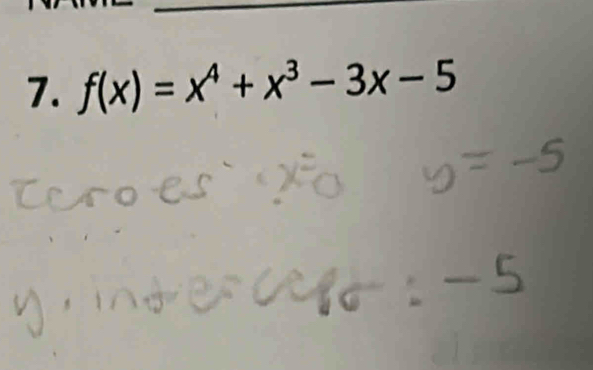 NAME
7. f(x) = x⁴ + x³ - 3x - 5
zeroes : x=0 y = -5
y. intercept : -5